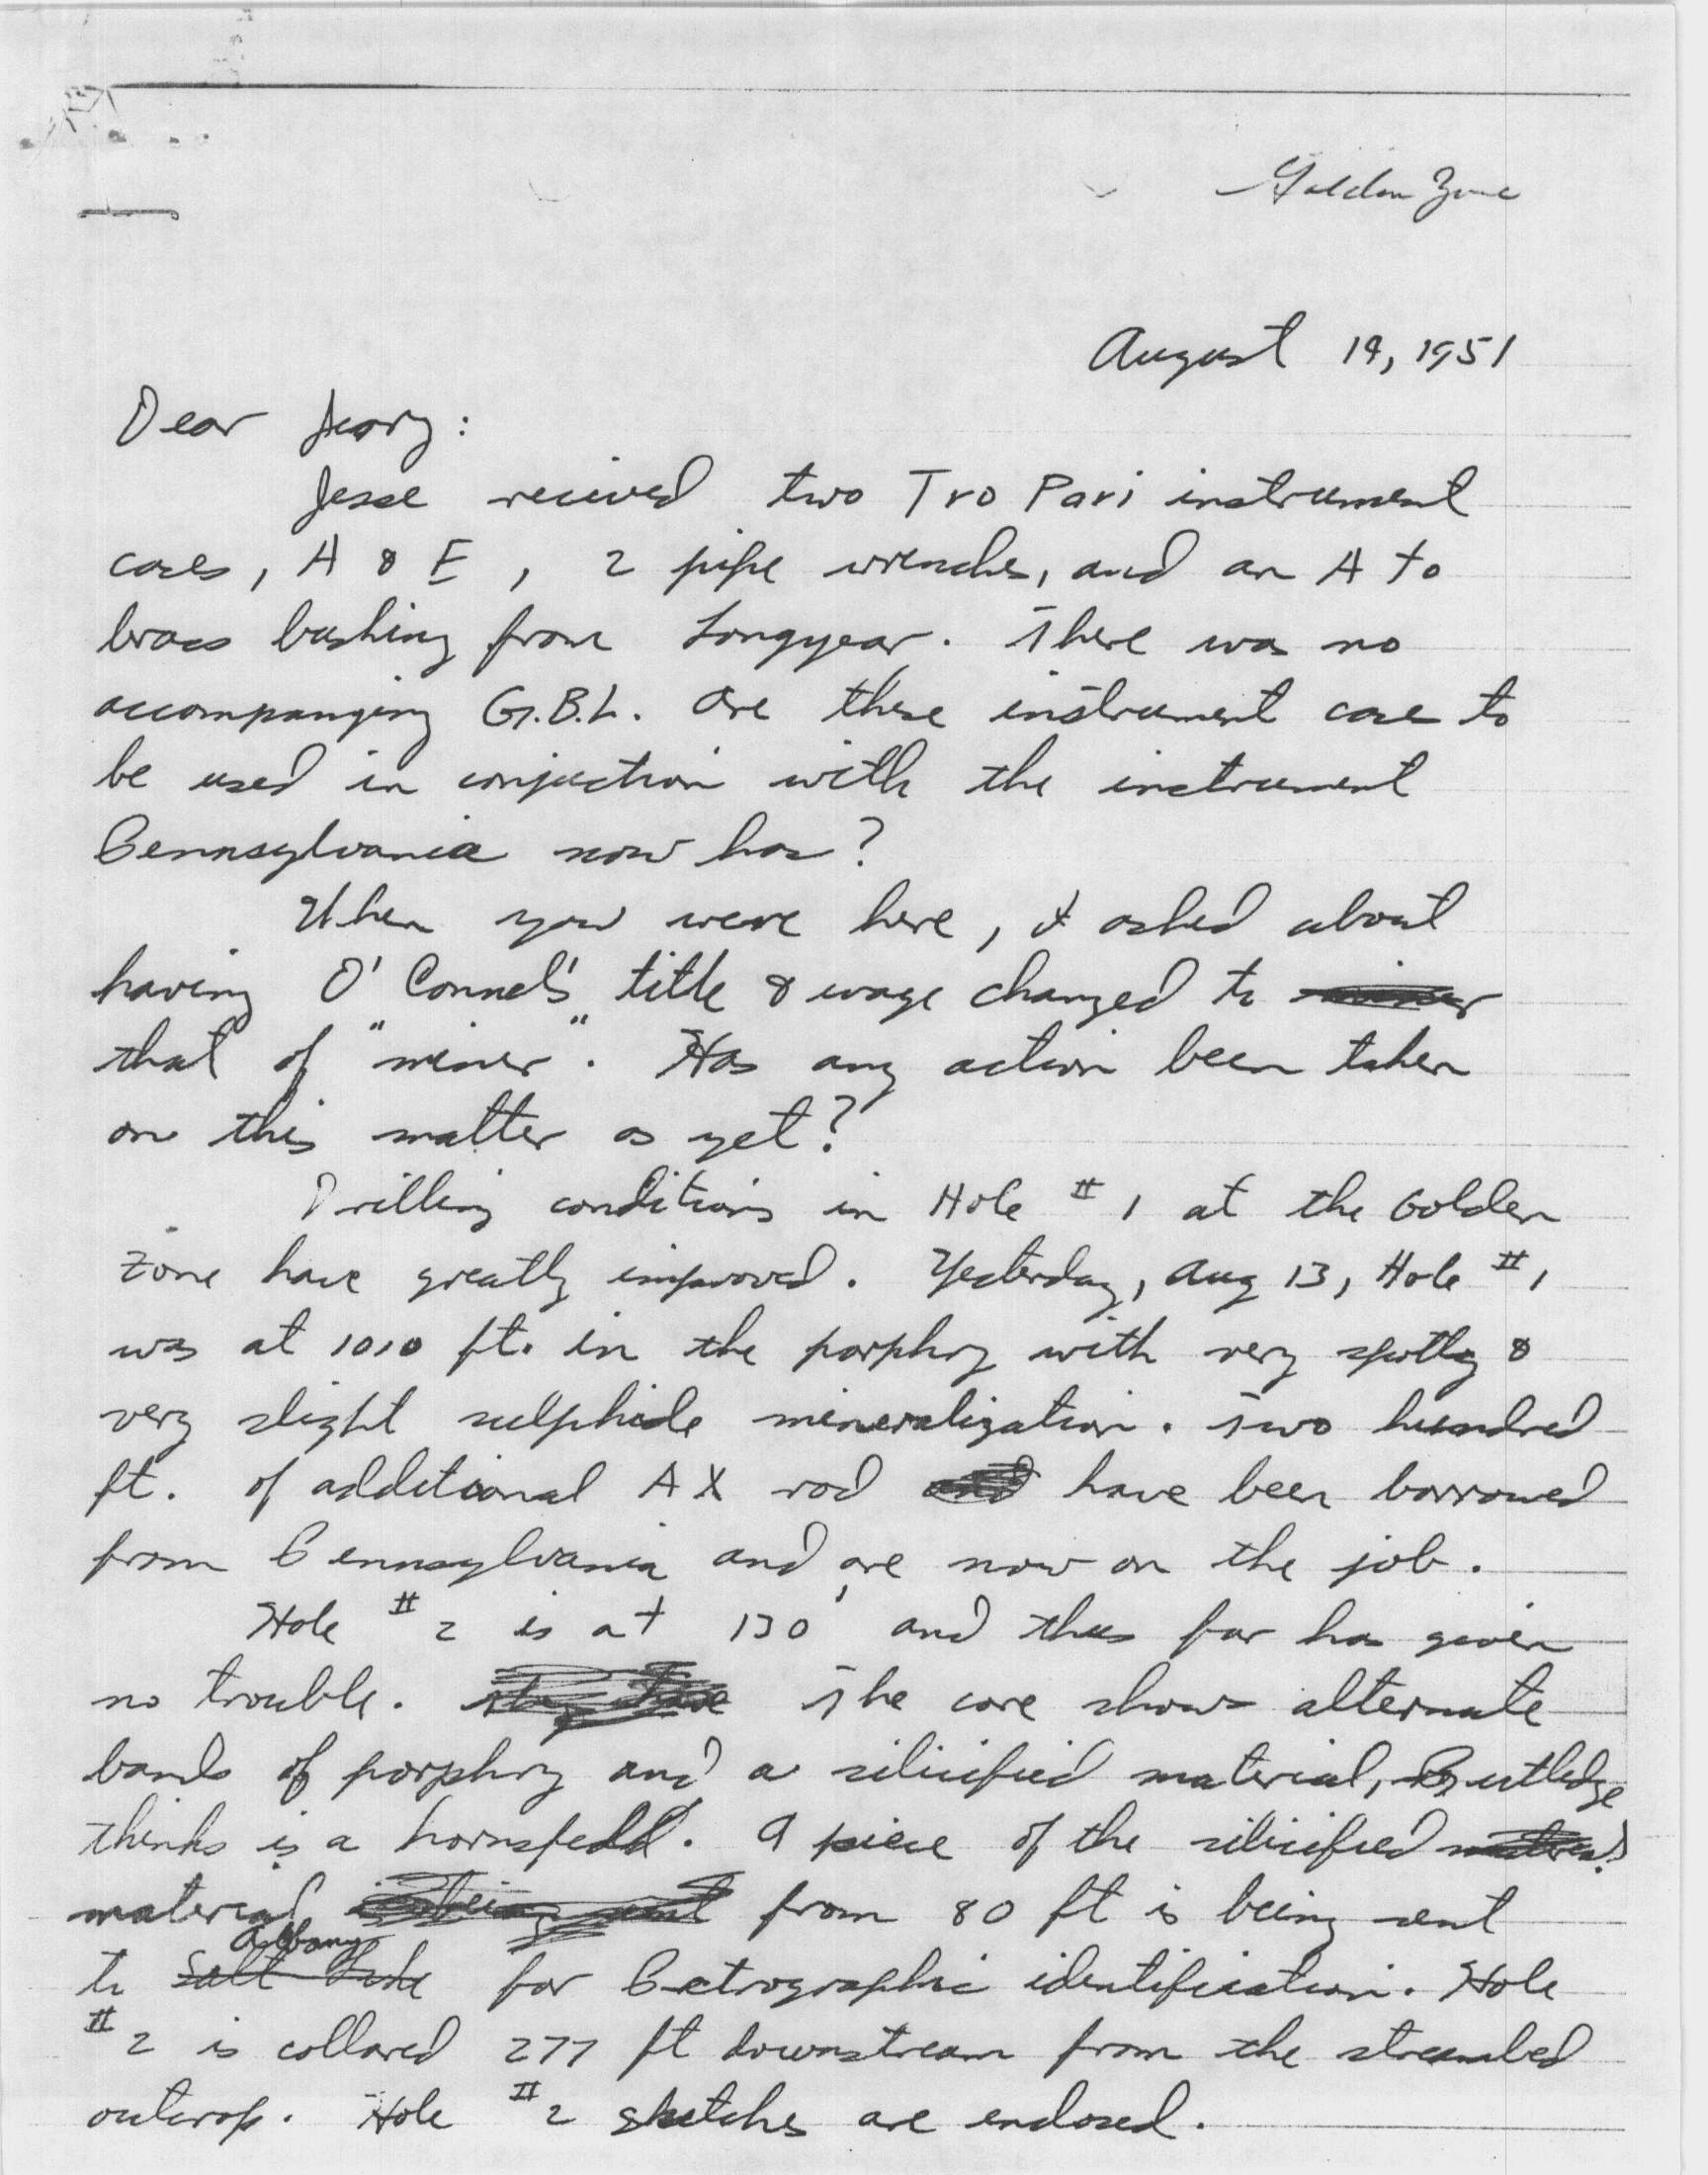 Golden Zone
August 14, 1951
Dear Jerry:
Jesse recieved two Tro Pari instrument
cases, A & E, 2 pipe wrenches, and an A to
brass bushing from Longyear. There was no
accompanying G.B.L. Are these instrument case to
be used in conjuction with the instrument
Pennsylvania now has?
When you were here, I asked about
having O'Connel's title & wage changed to
that of "miner". Has any action been taken
on this matter as yet?
Drilling conditions in Hole #1 at the Golden
Zone have greatly improved. Yesterday, Aug 13, Hole #1
was at 1010 ft. in the porphry with very spotty &
very slight sulphide mineralization. Two hundred
ft. of additional AX rod have been borrowed
from Pennsylvania and are now on the job.
Hole #2 is at 130' and thus far has given
no trouble. The core shows alternate
bands of porphry and a silicified material, Rutledge
thinks is a hornsfeld. A piece of the silicified
material from 80 ft is being sent
to Albany for Petrographic identification. Hole
#2 is collared 277 ft downstream from the streambed
outcrop. Hole #2 sketches are enclosed.